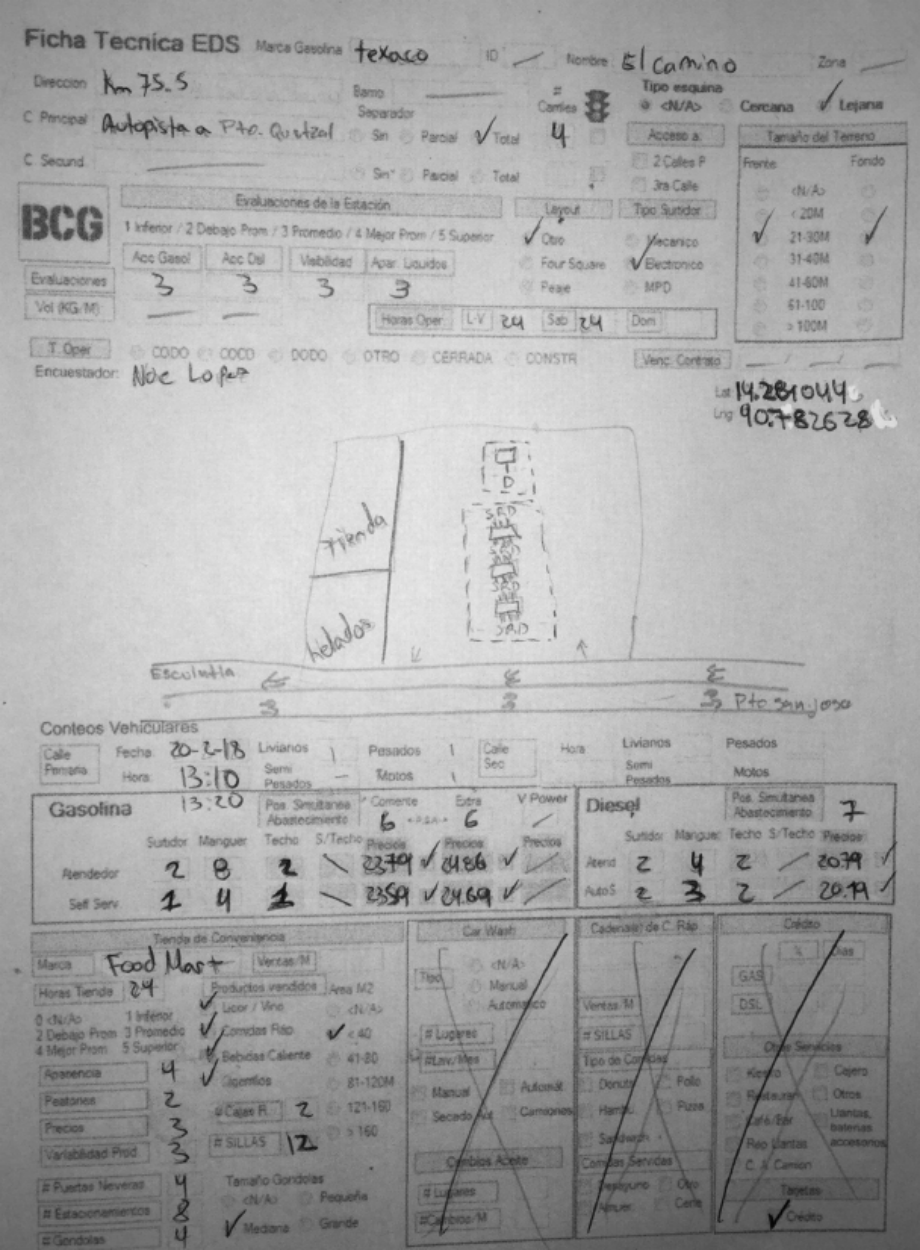 Ficha Tecnica EDS Marca Gasolina texaco ID — Nombre El camino Zona —
Direccion Km 75.5 Barrio — # Carriles Tipo esquina <N/A> Cercana ✓ Lejana
C Principal Autopista a Pto. Quetzal Separador Sin Parcial ✓ Total 4 Acceso a: Tamaño del Terreno
C Secund — Sin Parcial Total 2 Calles P 3ra Calle Frente Fondo
<N/A>
< 20M
✓ 21-30M ✓
31-40M
41-60M
61-100
> 100M
BCG
Evaluaciones de la Estación Layout Tipo Surtidor
1 Inferior / 2 Debajo Prom / 3 Promedio / 4 Mejor Prom / 5 Superior ✓ Otro Mecanico
Acc Gasol Acc Del Visibilidad Apar. Liquidos Four Square ✓ Electronico
Evaluaciones 3 3 3 3 Peaje MPD
Vol (KG/M) — — Horas Oper L-V 24 Sab 24 Dom
T. Oper CODO COCO DODO OTRO CERRADA CONSTR Venc. Contrato
Encuestador: Noe Lopez
Lat 14.281044
Lng 90.782628
D
SRD
Tienda
SRD
Helados
Escuintla
3 3 3 Pto san jose
Conteos Vehiculares
Calle Primaria Fecha 20-2-18 Livianos 1 Pesados 1 Calle Sec Hora Livianos Pesados
Hora 13:10 Semi Pesados — Motos 1 Semi Pesados Motos
13:20
Gasolina Pos. Simultanea Abastecimiento Corriente 6 Extra 6 V Power —
Surtidor Manguer Techo S/Techo Precios Precios Precios
Atendedor 2 8 2 \ 23.79 ✓ 24.86 ✓
Self Serv. 1 4 1 \ 23.59 ✓ 24.69 ✓
Diesel Pos. Simultanea Abastecimiento 7
Surtidor Manguer Techo S/Techo Precios
Atend 2 4 2 / 20.79 ✓
AutoS 2 3 2 / 20.19 ✓
Tienda de Conveniencia
Marca Food Mart Ventas/M
Horas Tienda 24 Productos vendidos Area M2
0 <N/A> 1 Inferior ✓ Licor / Vino <N/A>
2 Debajo Prom 3 Promedio ✓ Comidas Ráp ✓ < 40
4 Mejor Prom 5 Superior ✓ Bebidas Caliente 41-80
Apariencia 4 ✓ Cigarrillos 81-120M
Peatones 2 # Cajas R. 2 121-160
Precios 3 # SILLAS 12 > 160
Variabilidad Prod 3
# Puertas Neveras 4 Tamaño Gondolas
# Estacionamientos 8 <N/A> Pequeña
# Gondolas 4 ✓ Mediana Grande
Car Wash
Tipo <N/A>
Manual
Automatico
# Lugares
# Lav/Mes
Manual Automát
Secado Aut Camiones
Cambios Aceite
# Lugares
# Cambios/M
Cadena(s) de C. Ráp
Ventas/M
# SILLAS
Tipo de Comidas
Donuts Pollo
Hambu. Pizza
Sandwich
Comidas Servidas
Desayuno Otro
Almuer. Cena
Crédito
% Dias
GAS
DSL
Otros Servicios
Kiosko Cajero
Restauran Otros
Café/Bar Llantas, baterias accesorios
Rep Llantas
C. A. Camion
Tarjetas
✓ Crédito